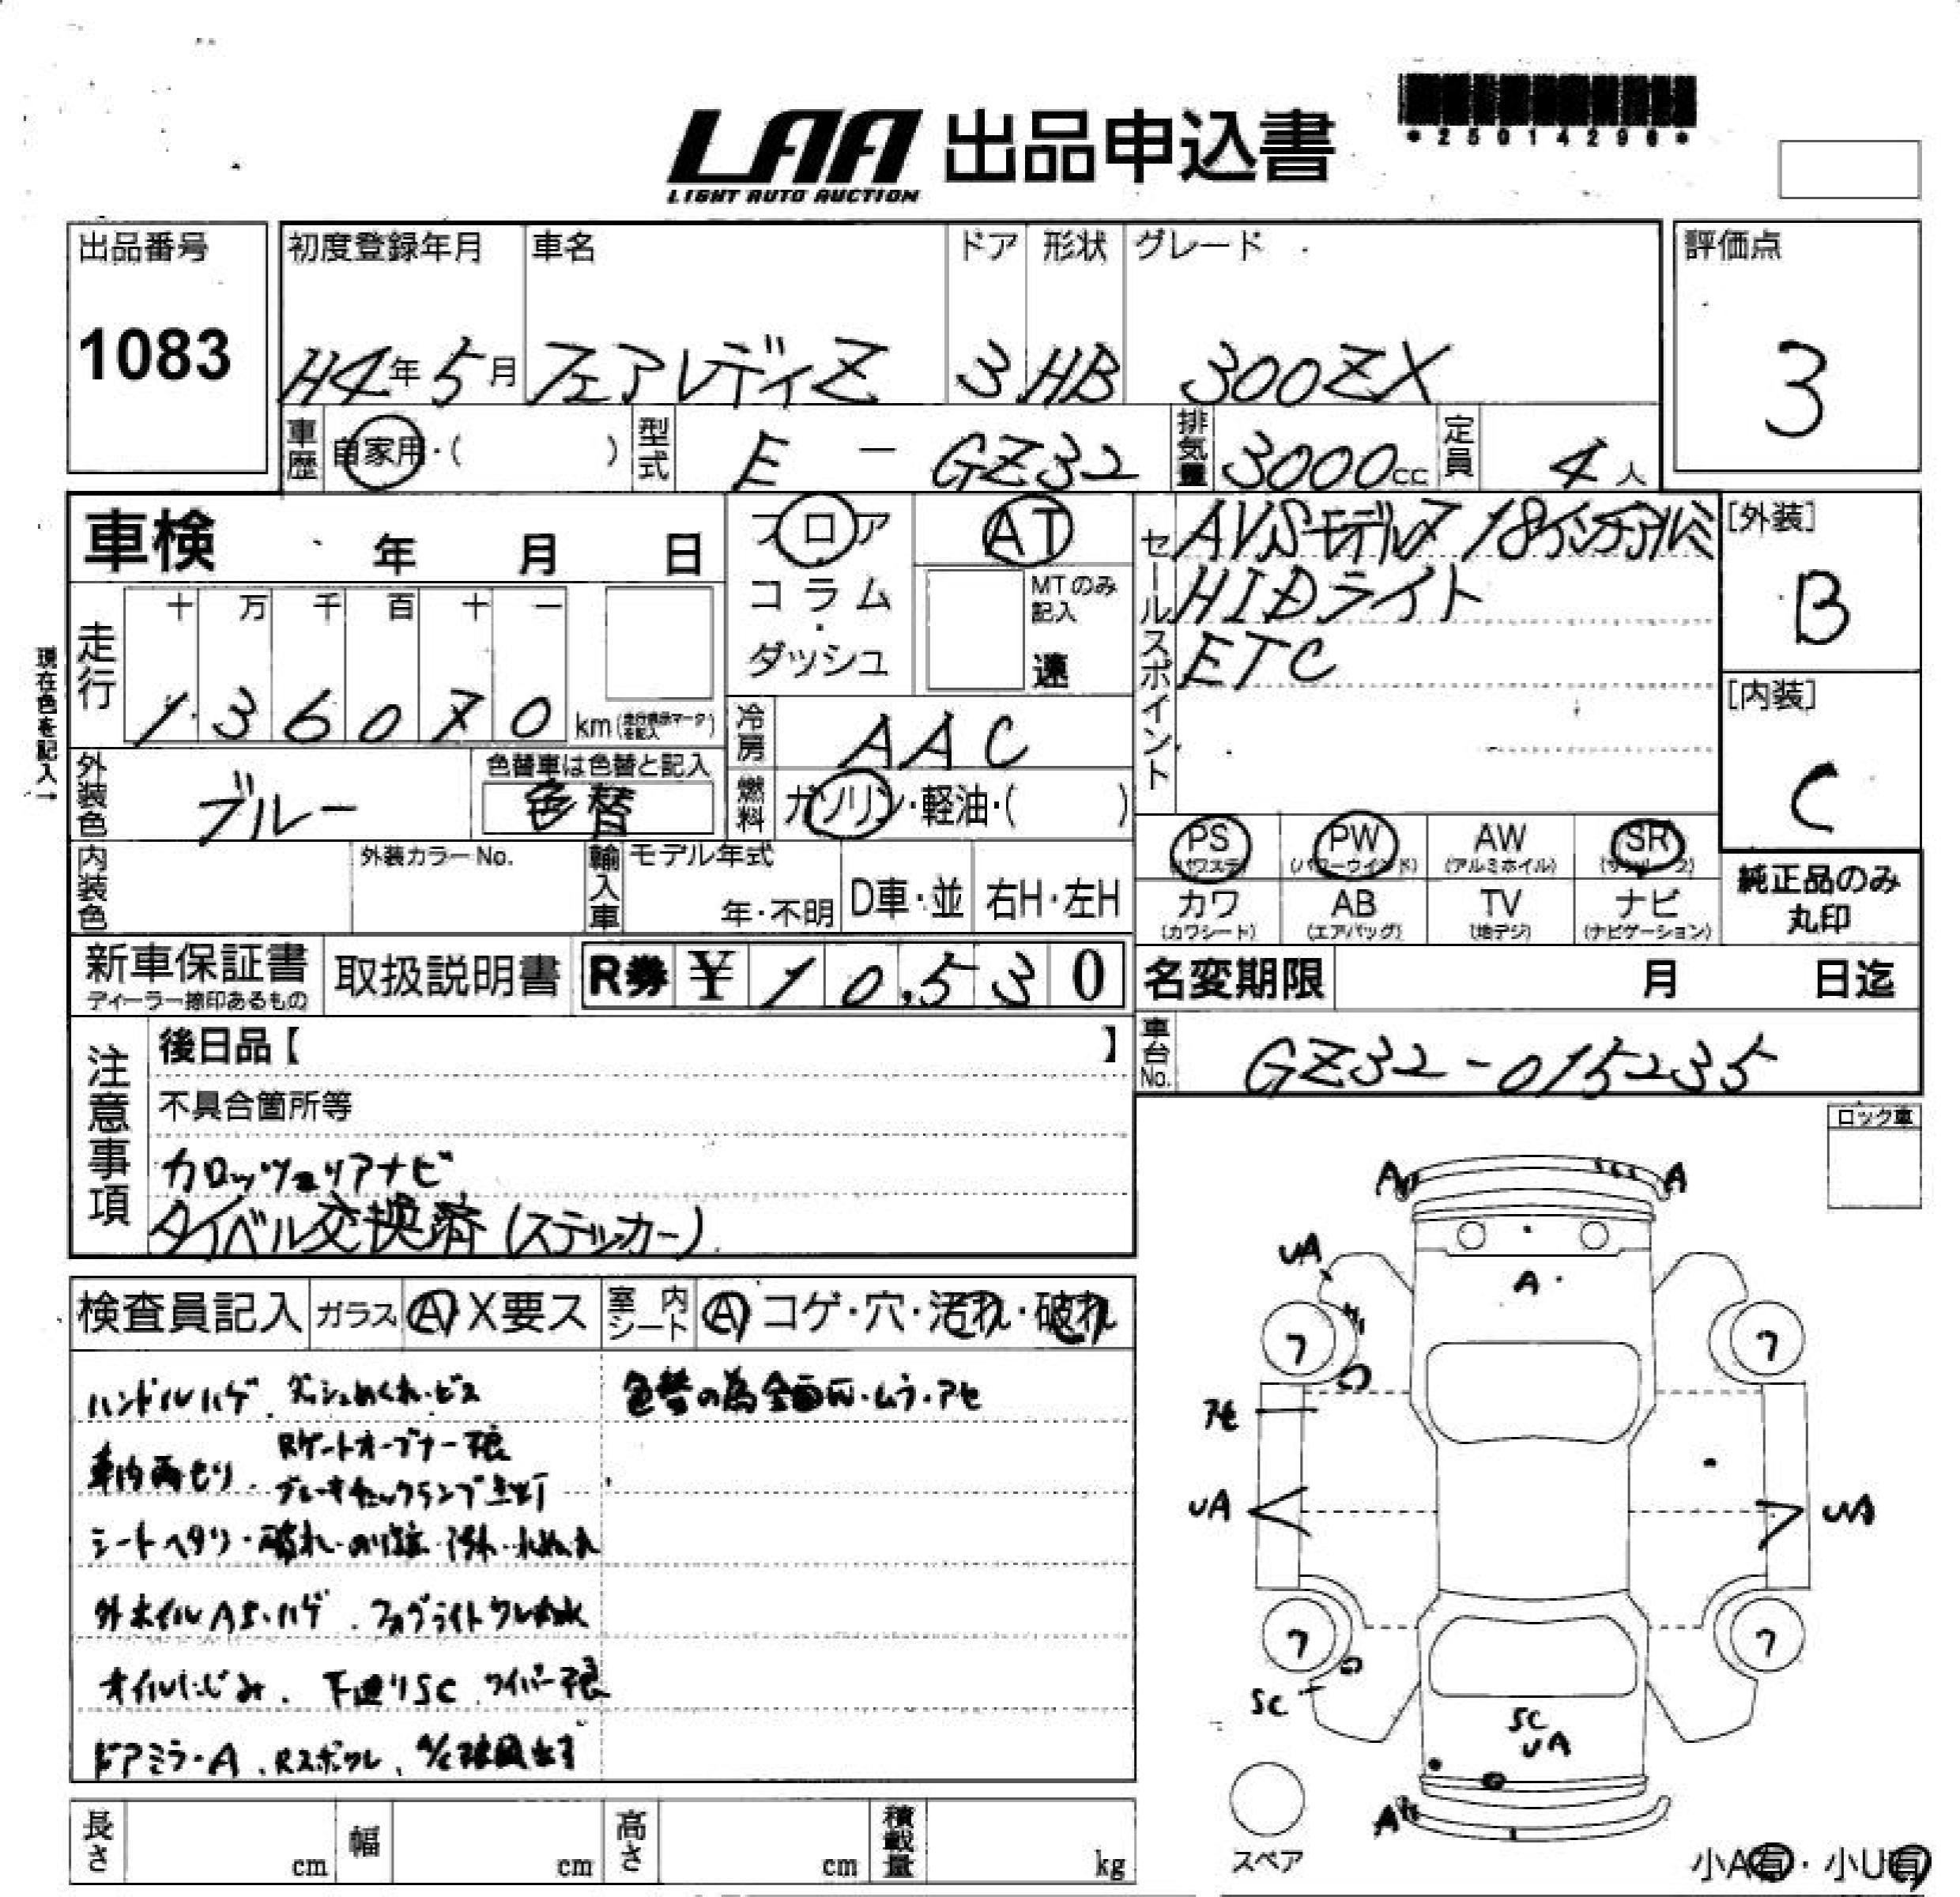 LAA 出品申込書
LIGHT AUTO AUCTION
*25014296*
出品番号
1083
初度登録年月 車名 ドア 形状 グレード
H4年5月 フェアレディZ 3 HB 300ZX
評価点
3
車歴 自家用・( ) 型式 E - GZ32 排気量 3000cc 定員 4人
車検 年 月 日
フロア
コラム
・
ダッシュ
AT
MTのみ記入
速
セールスポイント
AVSモデル7 18インチアルミ
HIDライト
ETC
[外装]
B
[内装]
C
現在色を記入→
走行
十 万 千 百 十 一
1 3 6 0 7 0 km
冷房 AAC
外装色 ブルー
色替車は色替と記入
色替
燃料 ガソリン・軽油・( )
PS (パワステ) PW (パワーウインド) AW (アルミホイル) SR (サンルーフ)
カワ (カワシート) AB (エアバッグ) TV (地デジ) ナビ (ナビゲーション)
純正品のみ
丸印
内装色 外装カラーNo. 輸入車 モデル年式
年・不明 D車・並 右H・左H
新車保証書
ディーラー捺印あるもの
取扱説明書 R券 ¥ 10,530
名変期限 月 日迄
車台No. GZ32-015235
注意事項
後日品【 】
不具合箇所等
カロッツェリアナビ
タイベル交換済(ステッカー)
ロック車
検査員記入 ガラス A X要ス 室内シート A コゲ・穴・汚れ・破れ
ハンドルハゲ、ダッシュめくれ・ビス
色替の為全面 ムラ・アセ
車内雨もり、Rゲートオープナー不良
ブレーキチェックランプ点灯
シートヘタリ・破れ 汚れ
外ホイルAS、ハゲ、フォグライトワレ
オイルにじみ、下廻りSC、ワイパー不良
ドアミラーA、Rスポワレ、A/C
A A
UA
A
7 7
アセ
UA UA
7 7
SC
SC
UA
A
スペア
小A有・小U有
長さ cm 幅 cm 高さ cm 積載量 kg